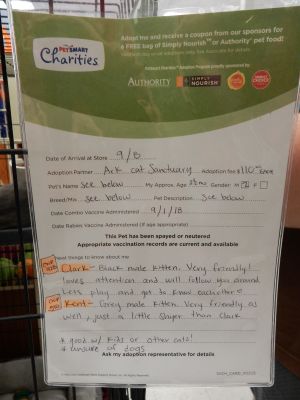 PETSMART
Charities
Adopt me and receive a coupon from our sponsors for
a FREE bag of Simply Nourish™ or Authority® pet food!
AUTHORITY
SIMPLY
NOURISH
Date of Arrival at Store 9/13
Adoption Partner Ark Cat Sanctuary Adoption fee $110
Pet's Name See below My Approx. Age Gender: M F
Breed/Mix See below Pet Description See below
Date Combo Vaccine Administered 9/1/18
Date Rabies Vaccine Administered (if age appropriate)
This Pet has been spayed or neutered
Appropriate vaccination records are current and available
Neat things to know about me
Clark- Black male kitten. Very friendly!
loves attention and will follow you around
Lets play, and get to know eachother
Kent- Grey male kitten. Very friendly as
well, just a little shyer than Clark
* good w/ kids or other cats!
* unsure of dogs
Ask my adoption representative for details